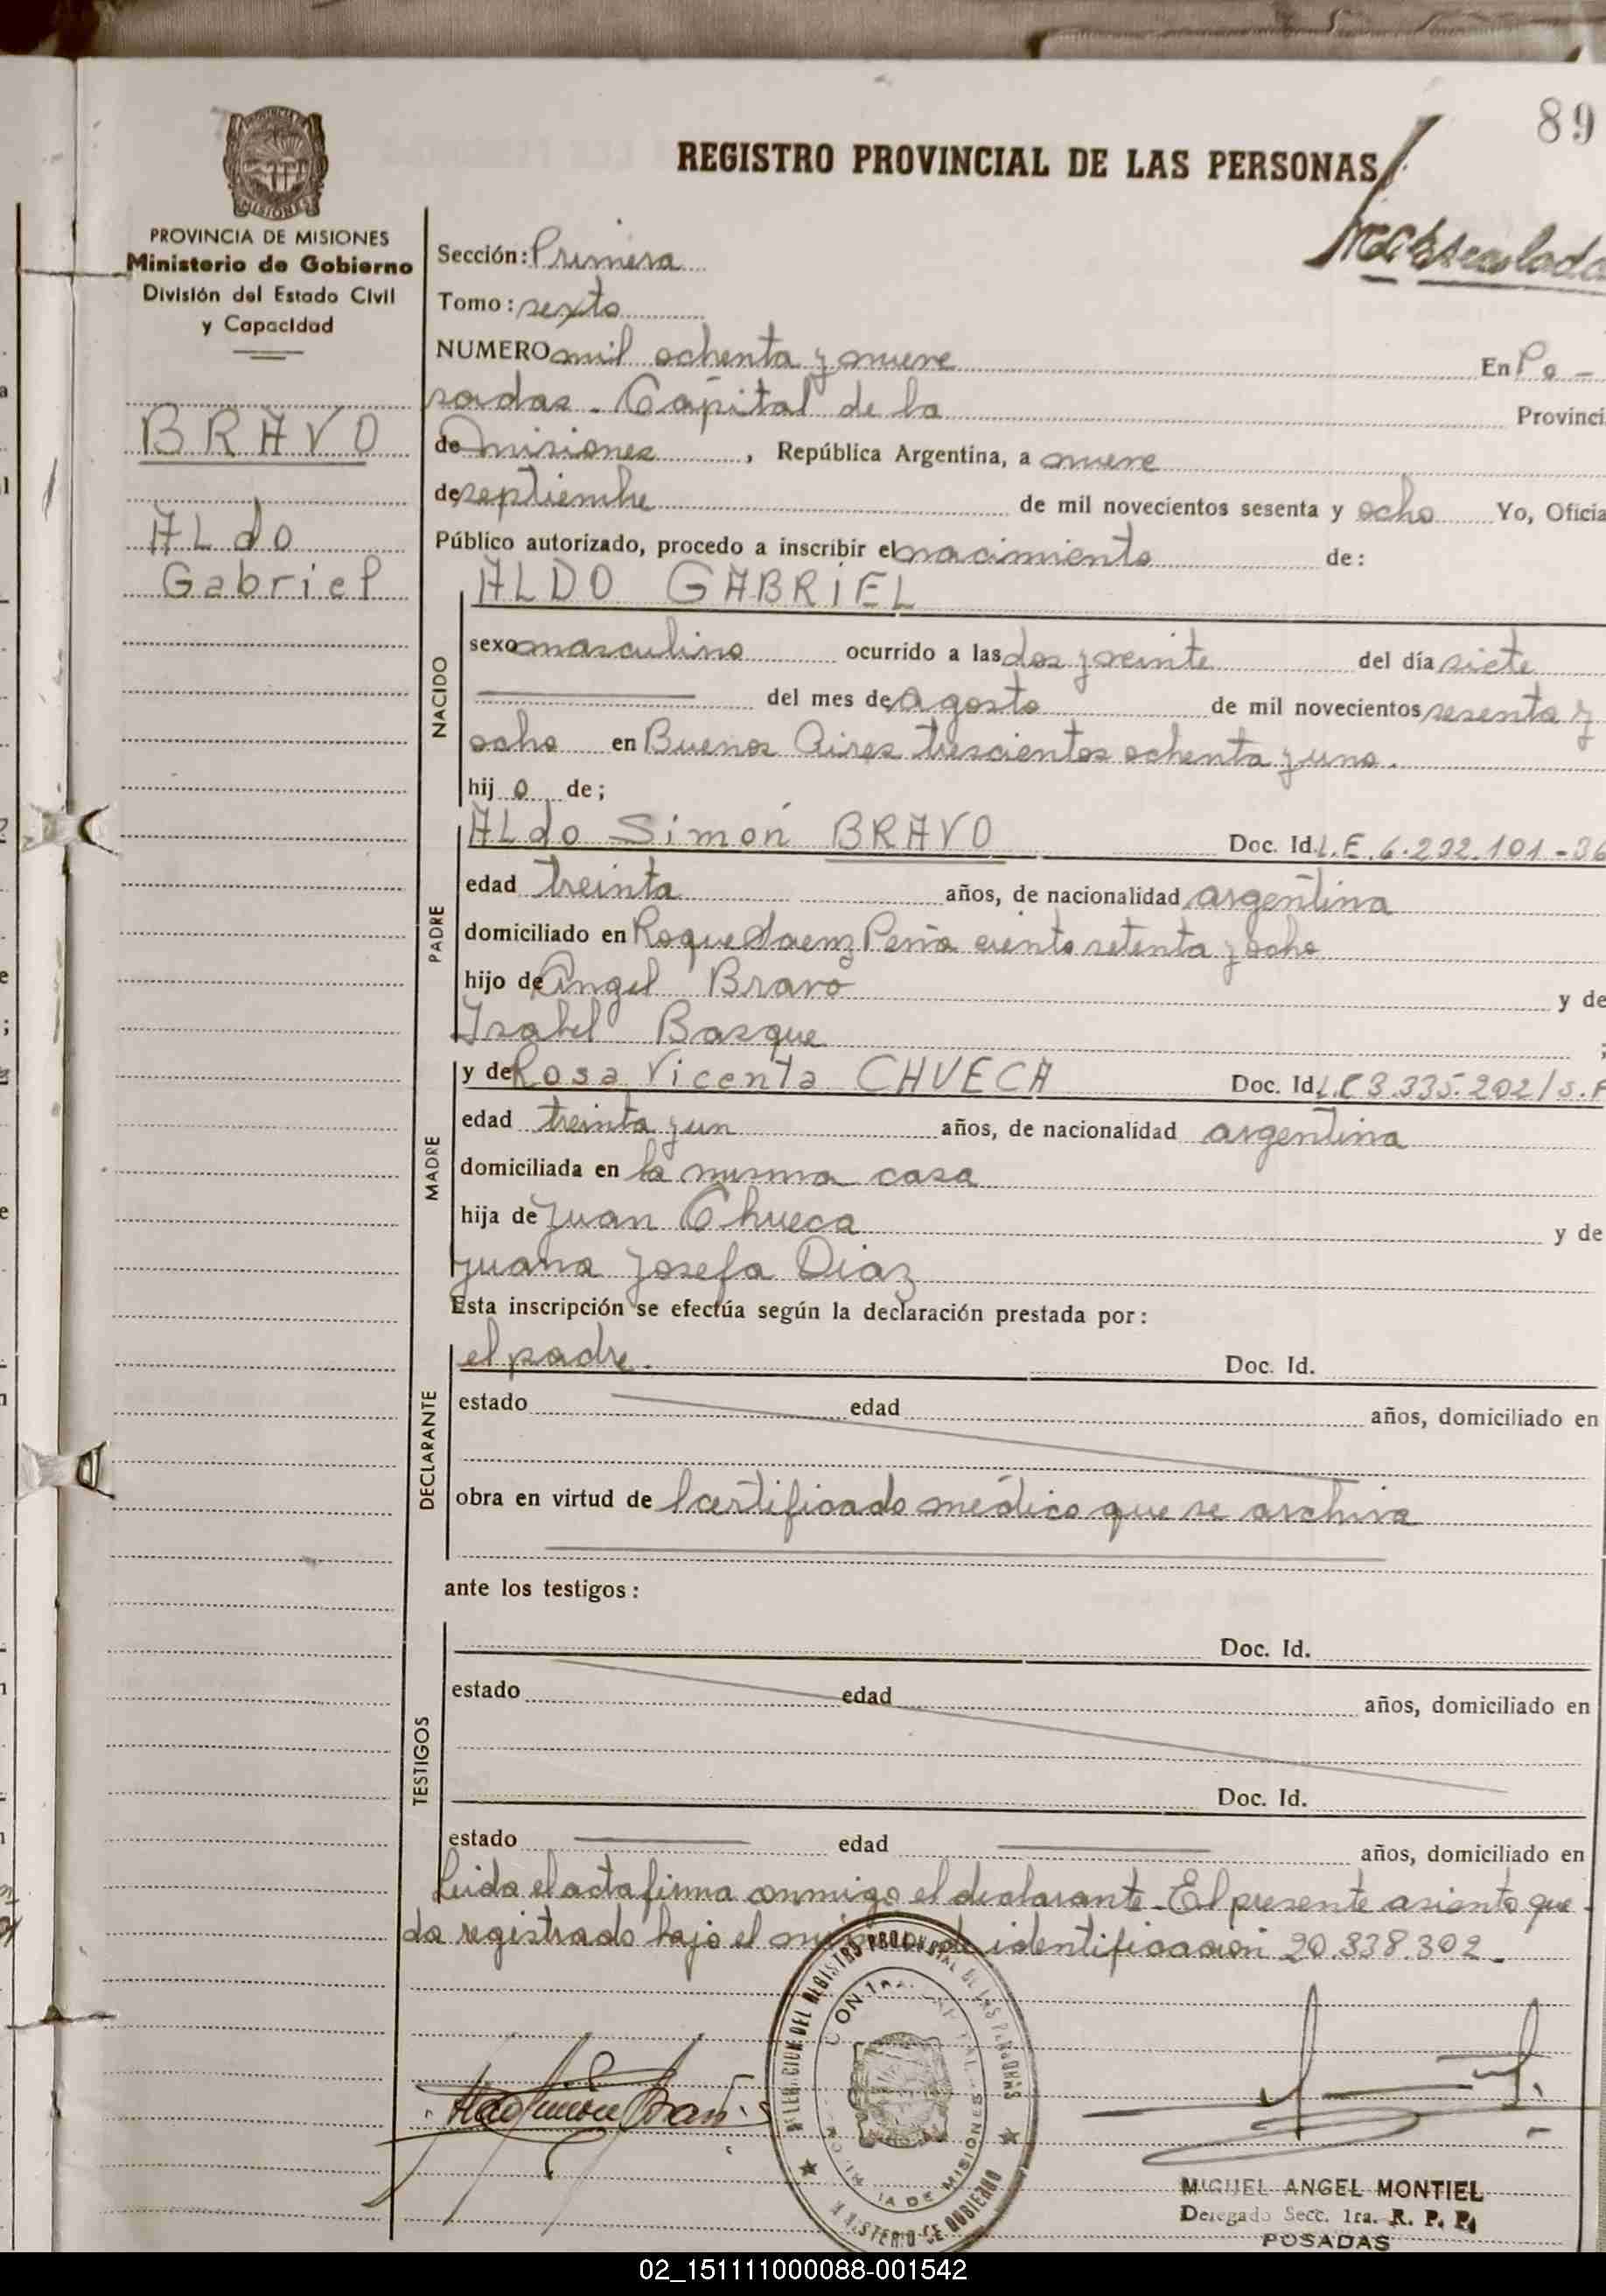 89
REGISTRO PROVINCIAL DE LAS PERSONAS
MISIONES
PROVINCIA DE MISIONES
Ministerio de Gobierno
División del Estado Civil
y Capacidad
BRAVO
ALdo
Gabriel
Sección: Primera
Tomo: sexto
NUMERO mil ochenta y nueve En Po-
sadas - Capital de la Provinci
de misiones, República Argentina, a nueve
de septiembre de mil novecientos sesenta y ocho Yo, Oficia
Público autorizado, procedo a inscribir el nacimiento de:
ALDO GABRIEL
NACIDO
sexo masculino ocurrido a las dos y veinte del día siete
del mes de agosto de mil novecientos sesenta y
ocho en Buenos Aires trescientos ochenta y uno.
hij o de;
PADRE
ALdo Simón BRAVO Doc. Id. L.E. 6.232.101-36
edad treinta años, de nacionalidad argentina
domiciliado en Roque Saenz Peña ciento setenta y ocho
hijo de Angel Bravo y de
Isabel Basque ;
MADRE
y de Rosa Vicenta CHUECA Doc. Id. L.C 3.335.202/S.F
edad treinta y un años, de nacionalidad argentina
domiciliada en la misma casa
hija de Juan Chueca y de
Juana Josefa Diaz
Esta inscripción se efectúa según la declaración prestada por:
DECLARANTE
el padre. Doc. Id.
estado edad años, domiciliado en
obra en virtud de l certificado médico que se archiva
ante los testigos:
TESTIGOS
Doc. Id.
estado edad años, domiciliado en
Doc. Id.
estado edad años, domiciliado en
Leida el acta firma conmigo el declarante. El presente asiento que-
da registrado bajo el número de identificación 20.338.302.-
MIGUEL ANGEL MONTIEL
Delegado Secc. 1ra. R. P. P.
POSADAS
02_151111000088-001542